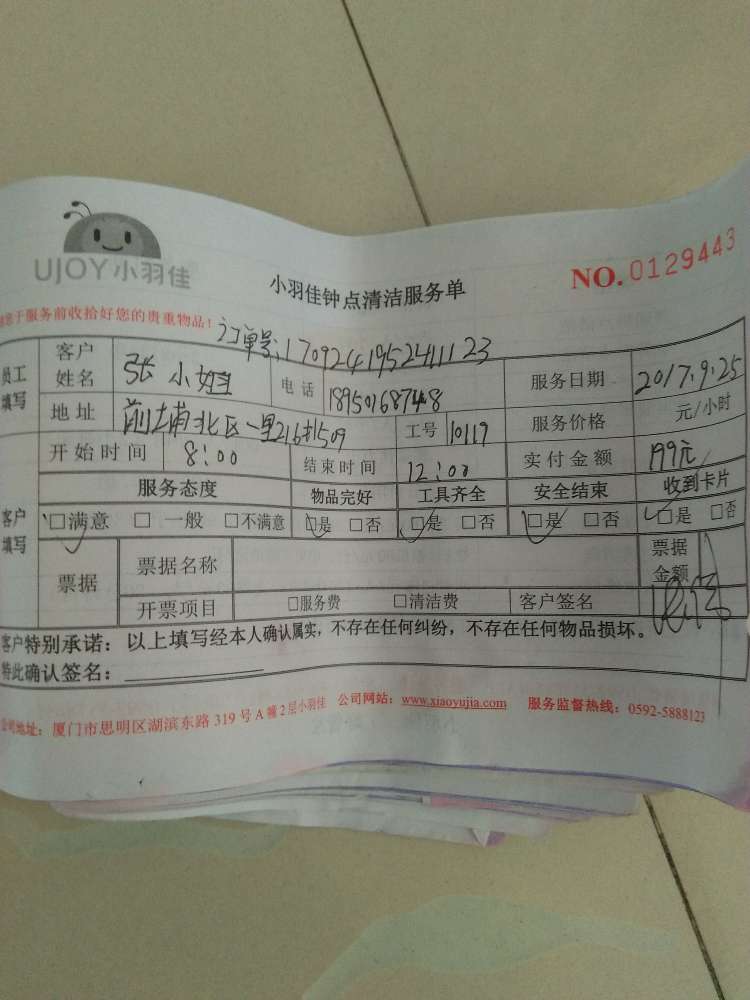 UJOY小羽佳
小羽佳钟点清洁服务单
NO.0129443
于服务前收拾好您的贵重物品!
订单号:1709241952411123
员工填写
客户姓名 张小姐 电话 服务日期 2017.9.25
地址 前埔北区一里216#1509 工号 10119 服务价格 元/小时
开始时间 8:00 结束时间 12:00 实付金额 199元
客户填写
服务态度 物品完好 工具齐全 安全结束 收到卡片
□满意 □一般 □不满意 □是 □否 □是 □否 □是 □否 □是 □否
票据 票据名称 票据金额
开票项目 □服务费 □清洁费 客户签名
客户特别承诺:以上填写经本人确认属实,不存在任何纠纷,不存在任何物品损坏。
特此确认签名:
公司地址:厦门市思明区湖滨东路319号A幢2层小羽佳 公司网站:www.xiaoyujia.com 服务监督热线:0592-5888123